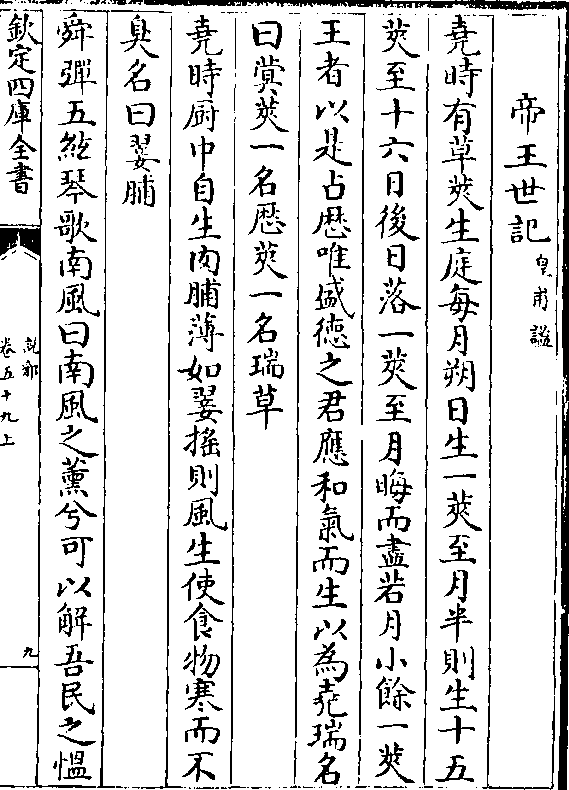 帝王世記 皇甫謐
堯時有草莢生庭每月朔日生一莢至月半則生十五
莢至十六日後日落一莢至月晦而盡若月小餘一莢
王者以是占歴唯盛徳之君應和氣而生以為堯瑞名
曰蓂莢一名歴莢一名瑞草
堯時厨中自生肉脯薄如翣搖則風生使食物寒而不
臭名曰翣脯
舜彈五絃琴歌南風曰南風之薰兮可以解吾民之愠
欽定四庫全書
説郛
卷五十九上
九